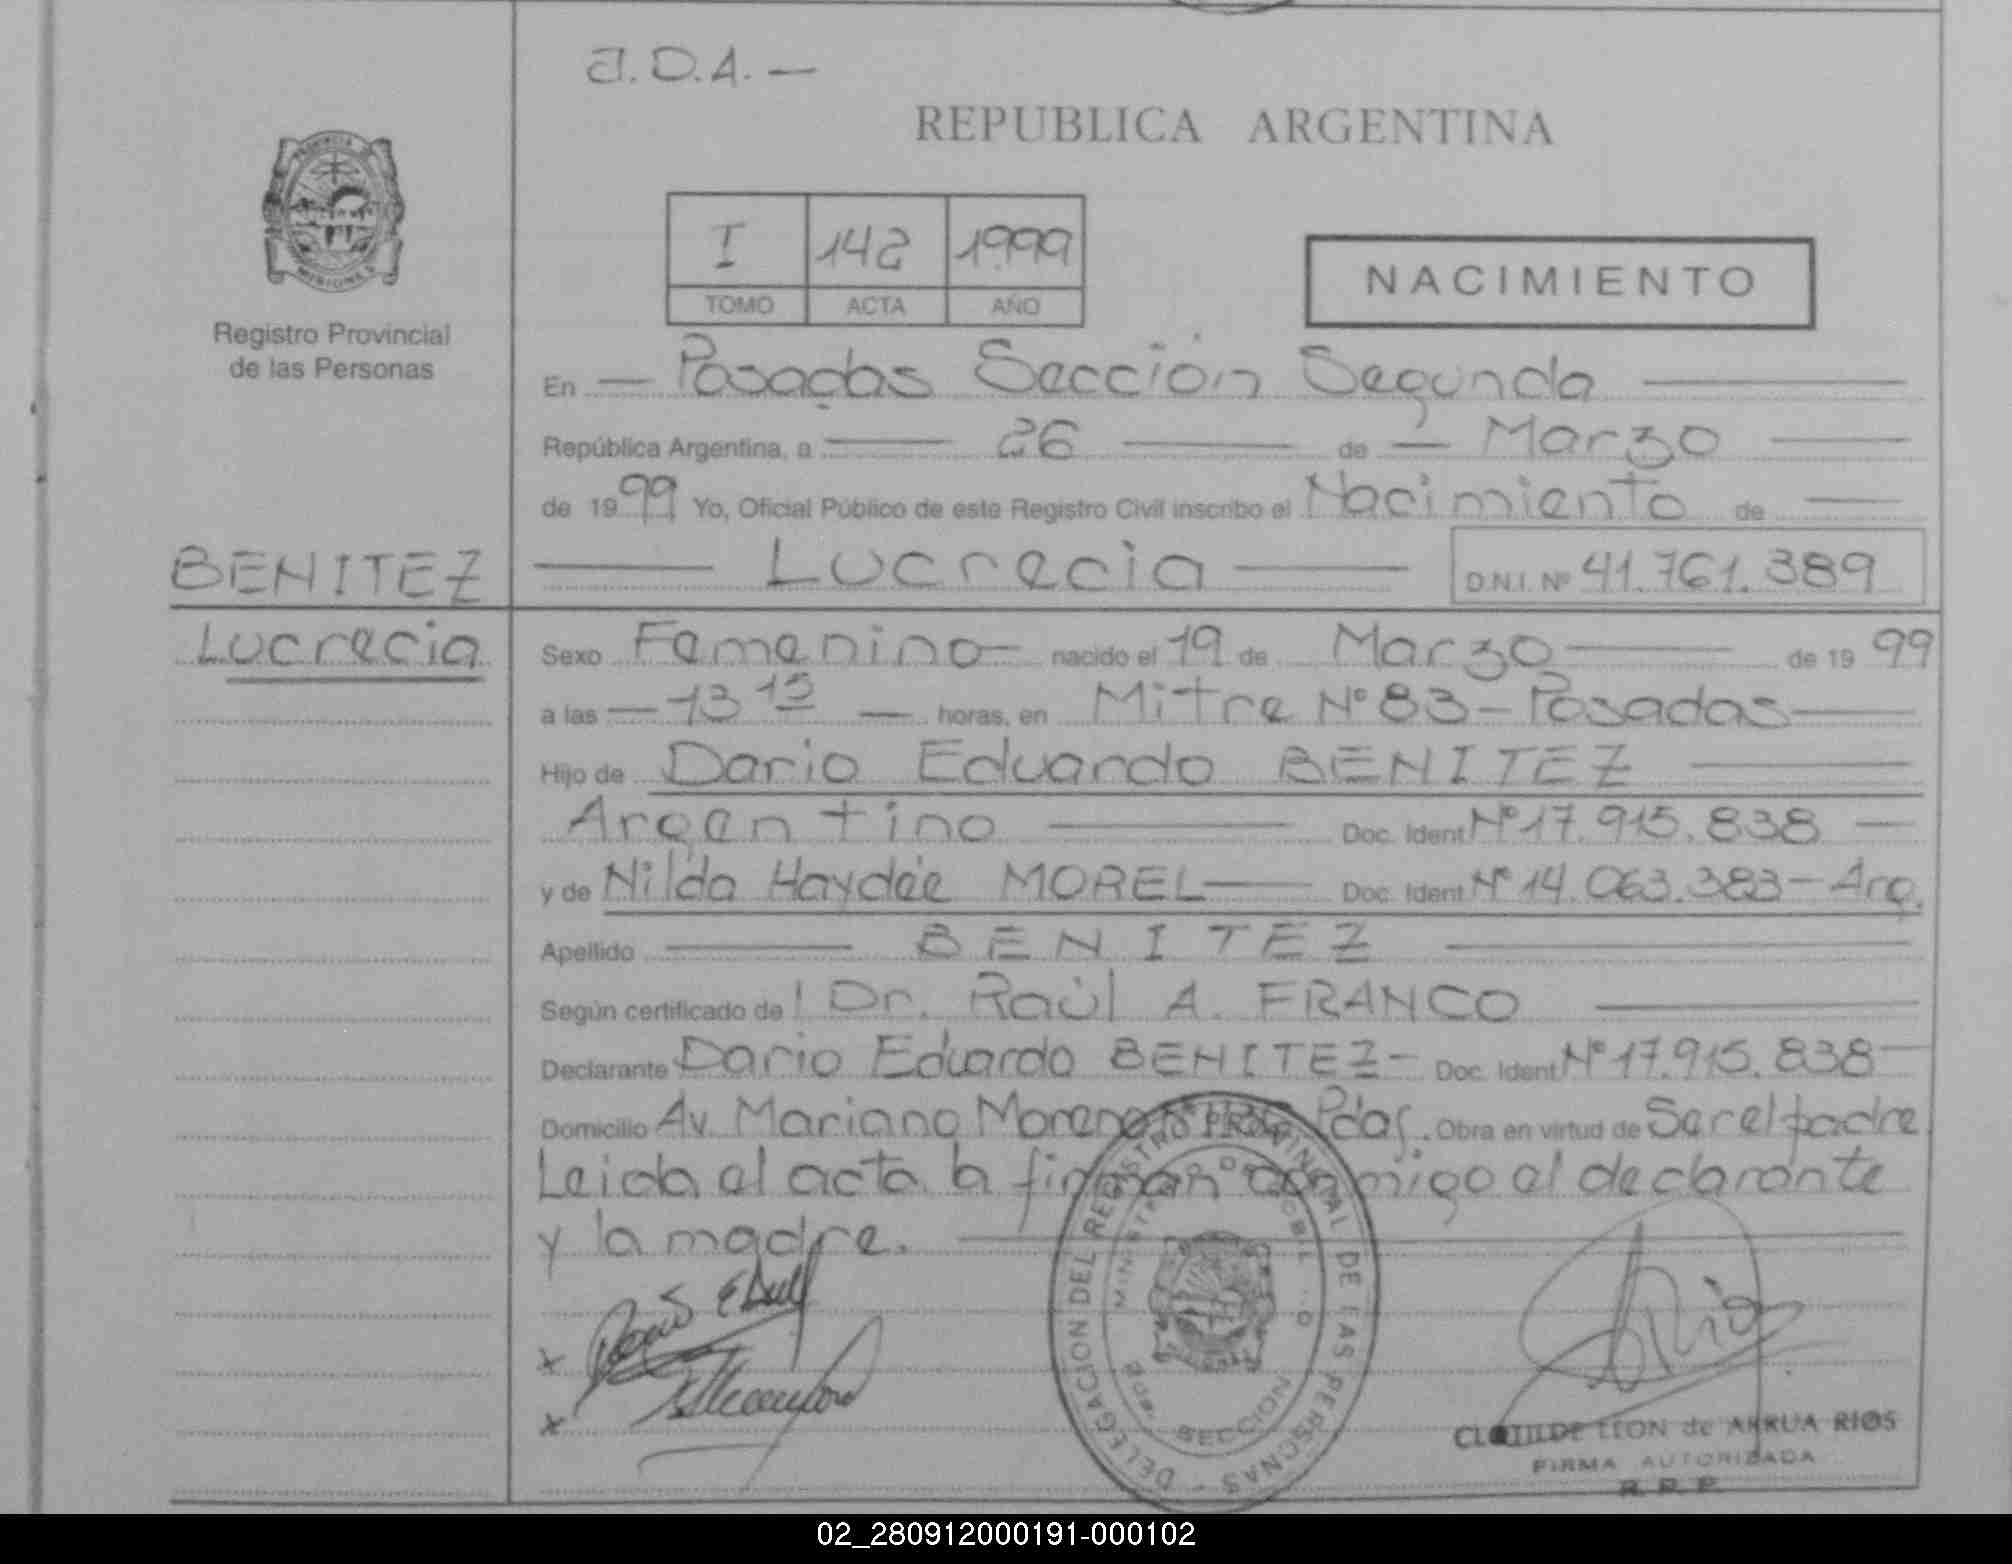 a.D.A. —
REPUBLICA ARGENTINA
I 142 1999
TOMO ACTA AÑO
NACIMIENTO
Registro Provincial
de las Personas
En — Posadas Sección Segunda —
República Argentina, a — 26 — de — Marzo —
de 1999 Yo, Oficial Público de este Registro Civil inscribo el Nacimiento de —
BENITEZ — Lucrecia — D.N.I. Nº 41.761.389
Lucrecia
Sexo Femenino — nacido el 19 de Marzo — de 19 99
a las — 13 15 — horas, en Mitre Nº 83 - Posadas —
Hijo de Dario Eduardo BENITEZ —
Argentino — Doc. Ident Nº 17.915.838 —
y de Nilda Haydée MOREL — Doc. Ident Nº 14.063.383 - Arg.
Apellido — BENITEZ —
Según certificado de Dr. Raúl A. FRANCO —
Declarante Dario Eduardo BENITEZ - Doc. Ident Nº 17.915.838 —
Domicilio Av. Mariano Moreno Pdas. Obra en virtud de Ser el padre
Leida el acta la firman conmigo el declarante
y la madre. —
DELEGACION DEL REGISTRO PROVINCIAL DE LAS PERSONAS
SECCION
CLOTILDE LEON de ARRUA RIOS
FIRMA AUTORIZADA
R.R.P.
02_280912000191-000102